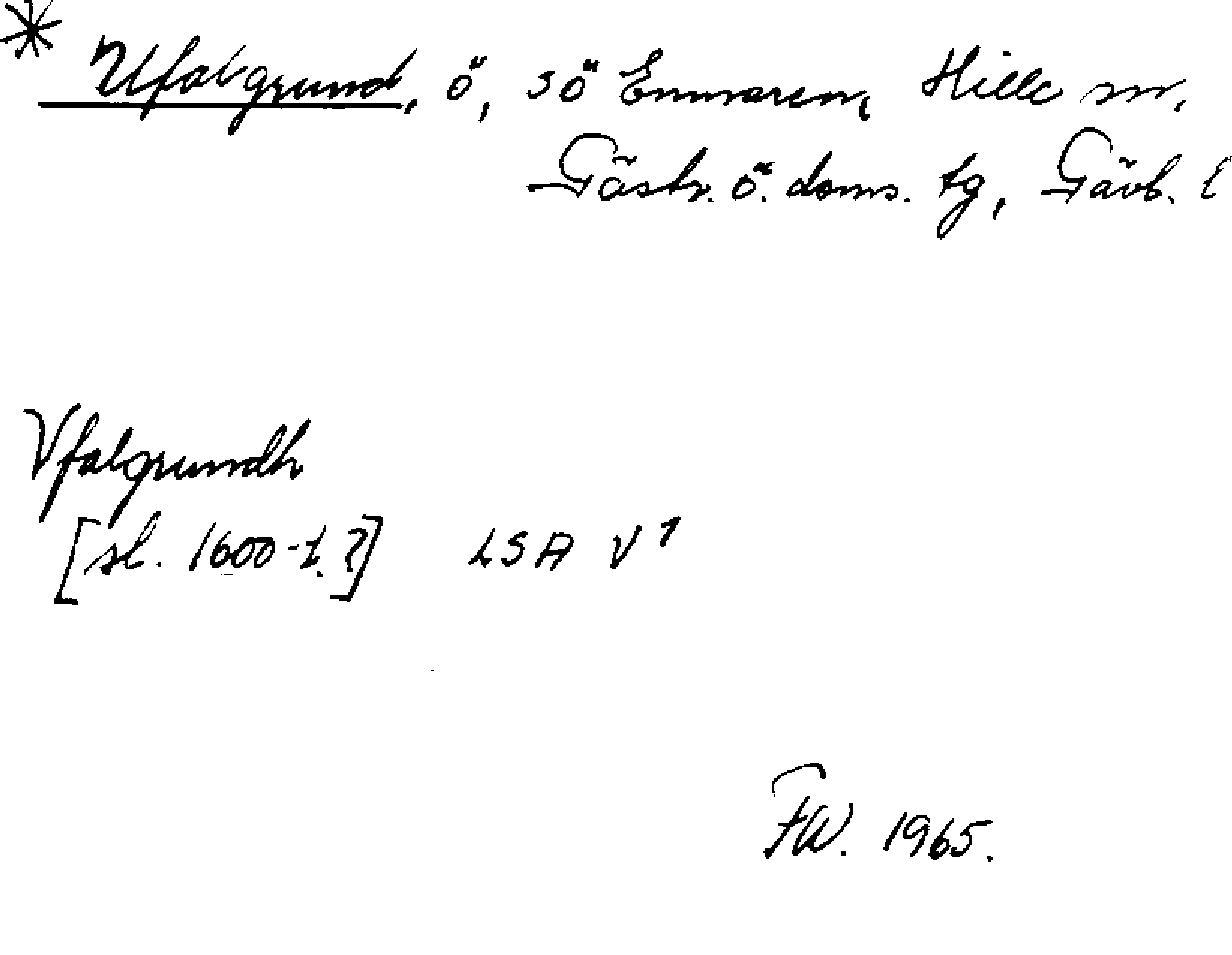 * Ufalgrund, ö, sö Enmaren, Hille sn,
Gästr. ö. doms. tg, Gävb. l
Vfalgrundh
[sl. 1600-t.?] LSA V 1
FW. 1965.